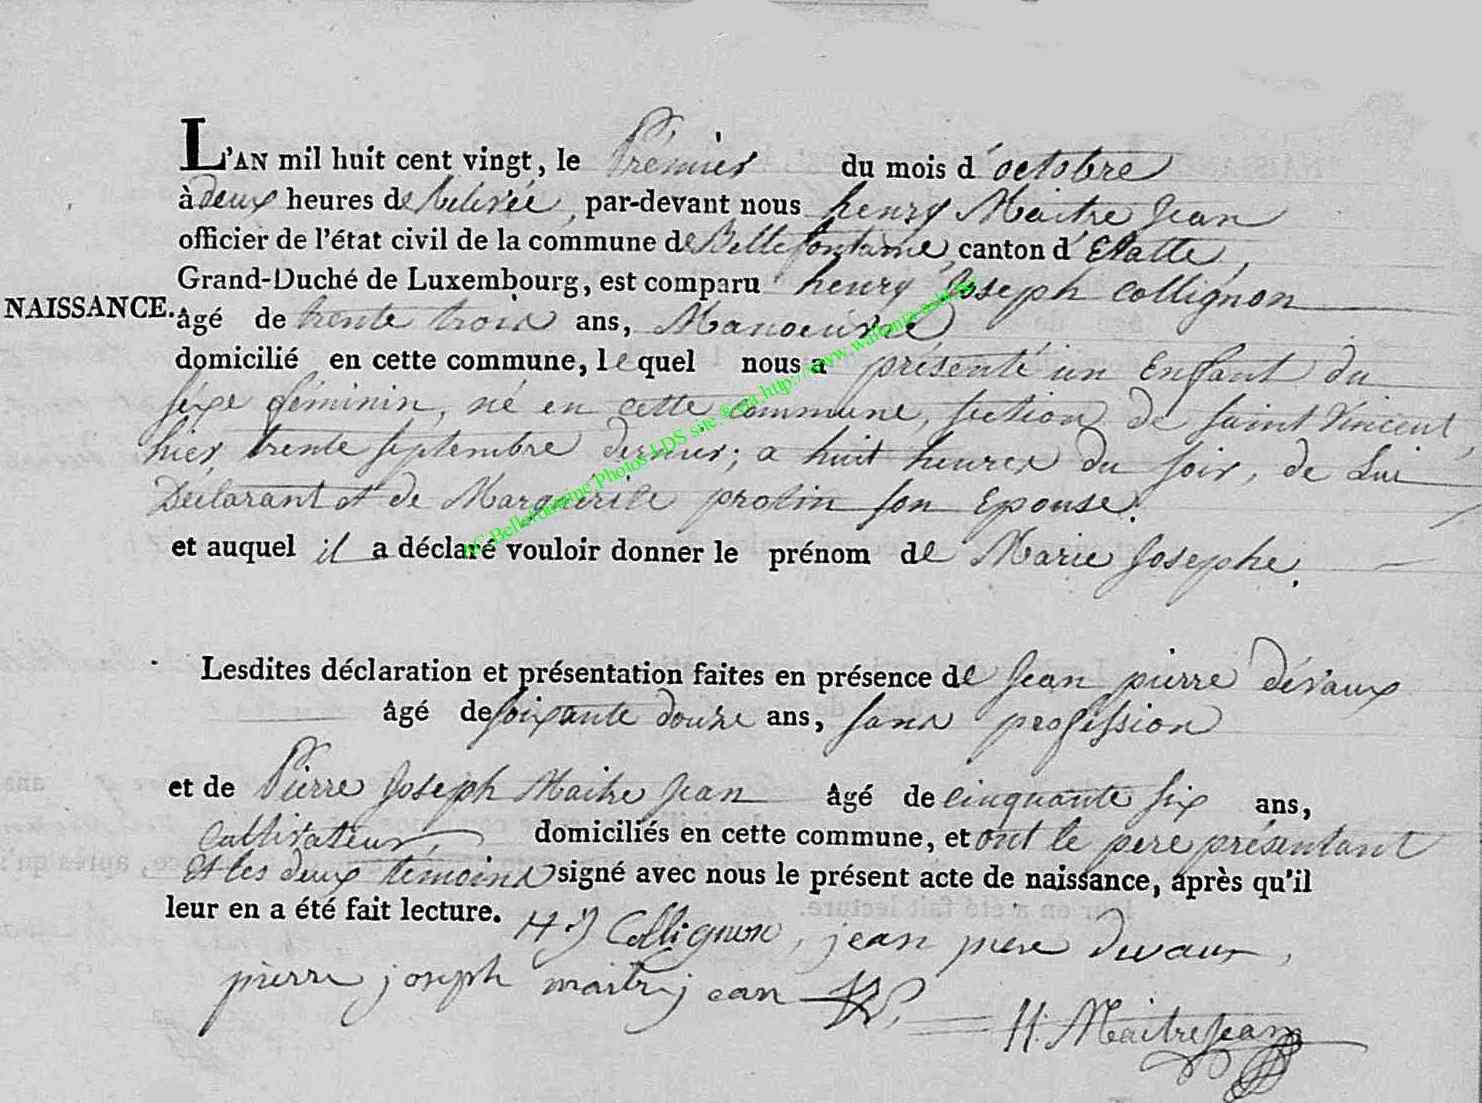 L'AN mil huit cent vingt, le Premier du mois d'octobre
à deux heures de Relevée, par-devant nous henry Maitre Jean
officier de l'état civil de la commune de Bellefontaine, canton d'Etatte,
Grand-Duché de Luxembourg, est comparu henry Joseph Collignon
NAISSANCE. âgé de trente trois ans, Manoeuvre
domicilié en cette commune, lequel nous a présenté un Enfant du
sexe féminin, né en cette commune, section de Saint Vincent
hier, trente septembre dernier; a huit heures du soir, de Lui
Déclarant et de Marguerite protin son Epouse.
et auquel il a déclaré vouloir donner le prénom de Marie Josephe.
Lesdites déclaration et présentation faites en présence de Jean pierre dévaux
âgé de soixante douze ans, sans profession
et de Pierre Joseph Maitre Jean âgé de cinquante six ans,
Cultivateur, domiciliés en cette commune, et ont le pere présentant
Et les deux temoins signé avec nous le présent acte de naissance, après qu'il
leur en a été fait lecture. H J Collignon, jean piere devaux,
pierre joseph maitrejean
H. MaitreJean
Bellefontaine Photos LDS site http://www.